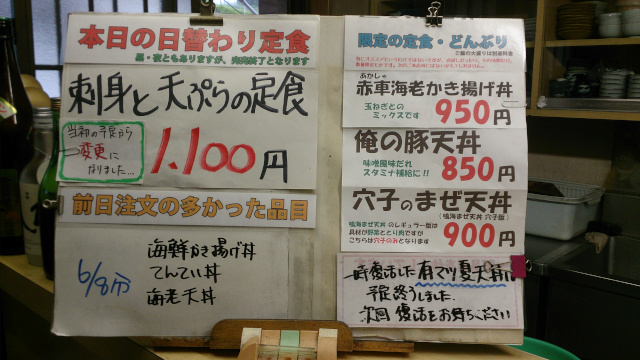 本日の日替わり定食
昼・夜ともありますが、売切終了となります
刺身と天ぷらの定食
当初の予定から
変更に
なりました…
1,100円
前日注文の多かった品目
6/8分
海鮮かき揚げ丼
てんてい丼
海老天丼
限定の定食・どんぶり
ご飯の大盛りは別途料金
あかしゃ
赤車海老かき揚げ丼
玉ねぎとの
ミックスです
950円
俺の豚天丼
味噌風味だれ
スタミナ補給に!!
850円
穴子のまぜ天丼
(鳴海まぜ天丼 穴子版)
鳴海まぜ天丼 のレギュラー版は
具材が野菜ととり肉ですが
こちらは穴子のみとなります
900円
一時復活した有マツ夏天丼は
予定終了しました
次回 復活をお待ちください